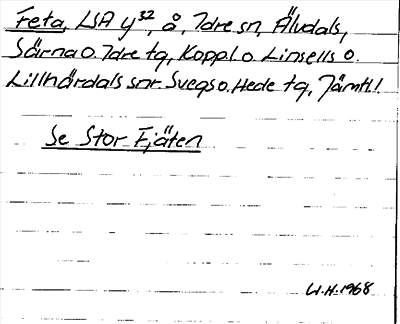 Feta, LSA y³², å, Idre sn, Älvdals,
Särna o. Idre tg, Kopp l. o. Linsells o.
Lillhärdals snr Svegs o. Hede tg, Jämtl.l.
Se Stor-Fjäten
W.H. 1968